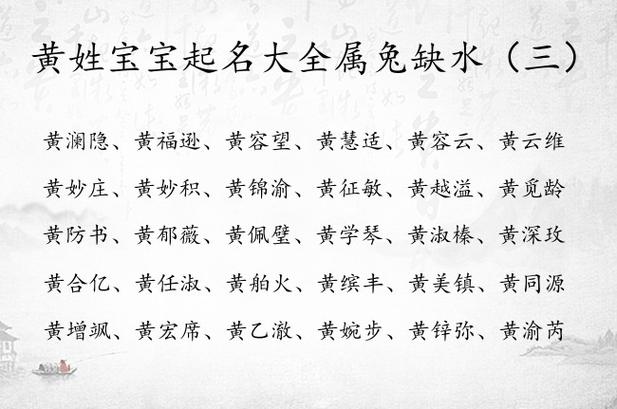 黄姓宝宝起名大全属兔缺水（三）
黄澜隐、黄福逊、黄容望、黄慧适、黄容云、黄云维
黄妙庄、黄妙积、黄锦渝、黄征敏、黄越溢、黄觅龄
黄防书、黄郁薇、黄佩璧、黄学琴、黄淑榛、黄深玫
黄合亿、黄任淑、黄舶火、黄缤丰、黄美镇、黄同源
黄增飒、黄宏席、黄乙澈、黄婉步、黄锌弥、黄渝芮